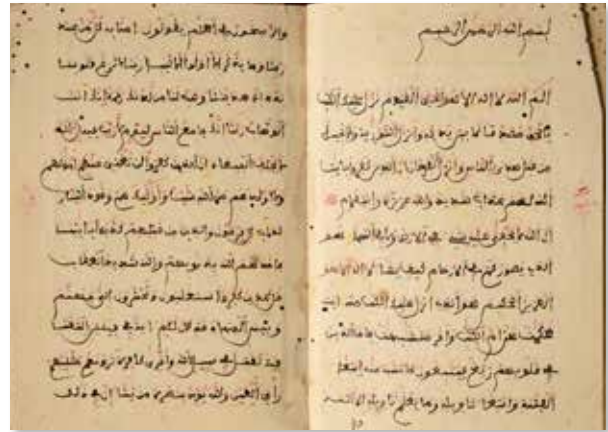 بسم الله الرحمن الرحيم
الم الله لا اله الا هو الحي القيوم نزل عليك الكتب
بالحق مصدقا لما بين يديه وانزل التورية والانجيل
من قبل هدى للناس وانزل الفرقان ان الذين كفروا بايت
الله لهم عذاب شديد والله عزيز ذو انتقام
ان الله لا يخفى عليه شيء في الارض ولا في السماء هو
الذي يصوركم في الارحام كيف يشاء لا اله الا هو
العزيز الحكيم هو الذي انزل عليك الكتب منه ايت
محكمت هن ام الكتب واخر متشبهت فاما الذين
في قلوبهم زيغ فيتبعون ما تشبه منه ابتغاء
الفتنة وابتغاء تاويله وما يعلم تاويله الا الله
والراسخون في العلم يقولون امنا به كل من عند
ربنا وما يذكر الا اولوا الالبب ربنا لا تزغ قلوبنا
بعد اذ هديتنا وهب لنا من لدنك رحمة انك انت
الوهاب ربنا انك جامع الناس ليوم لا ريب فيه ان الله
لا يخلف الميعاد ان الذين كفروا لن تغني عنهم اموالهم
ولا اولدهم من الله شيئا واولئك هم وقود النار
كداب ال فرعون والذين من قبلهم كذبوا بايتنا
فاخذهم الله بذنوبهم والله شديد العقاب
قل للذين كفروا ستغلبون وتحشرون الى جهنم
وبيس المهاد قد كان لكم اية في فئتين التقتا
فئة تقتل في سبيل الله واخرى كافرة ترونهم مثليهم
راي العين والله يؤيد بنصره من يشاء ان في ذلك